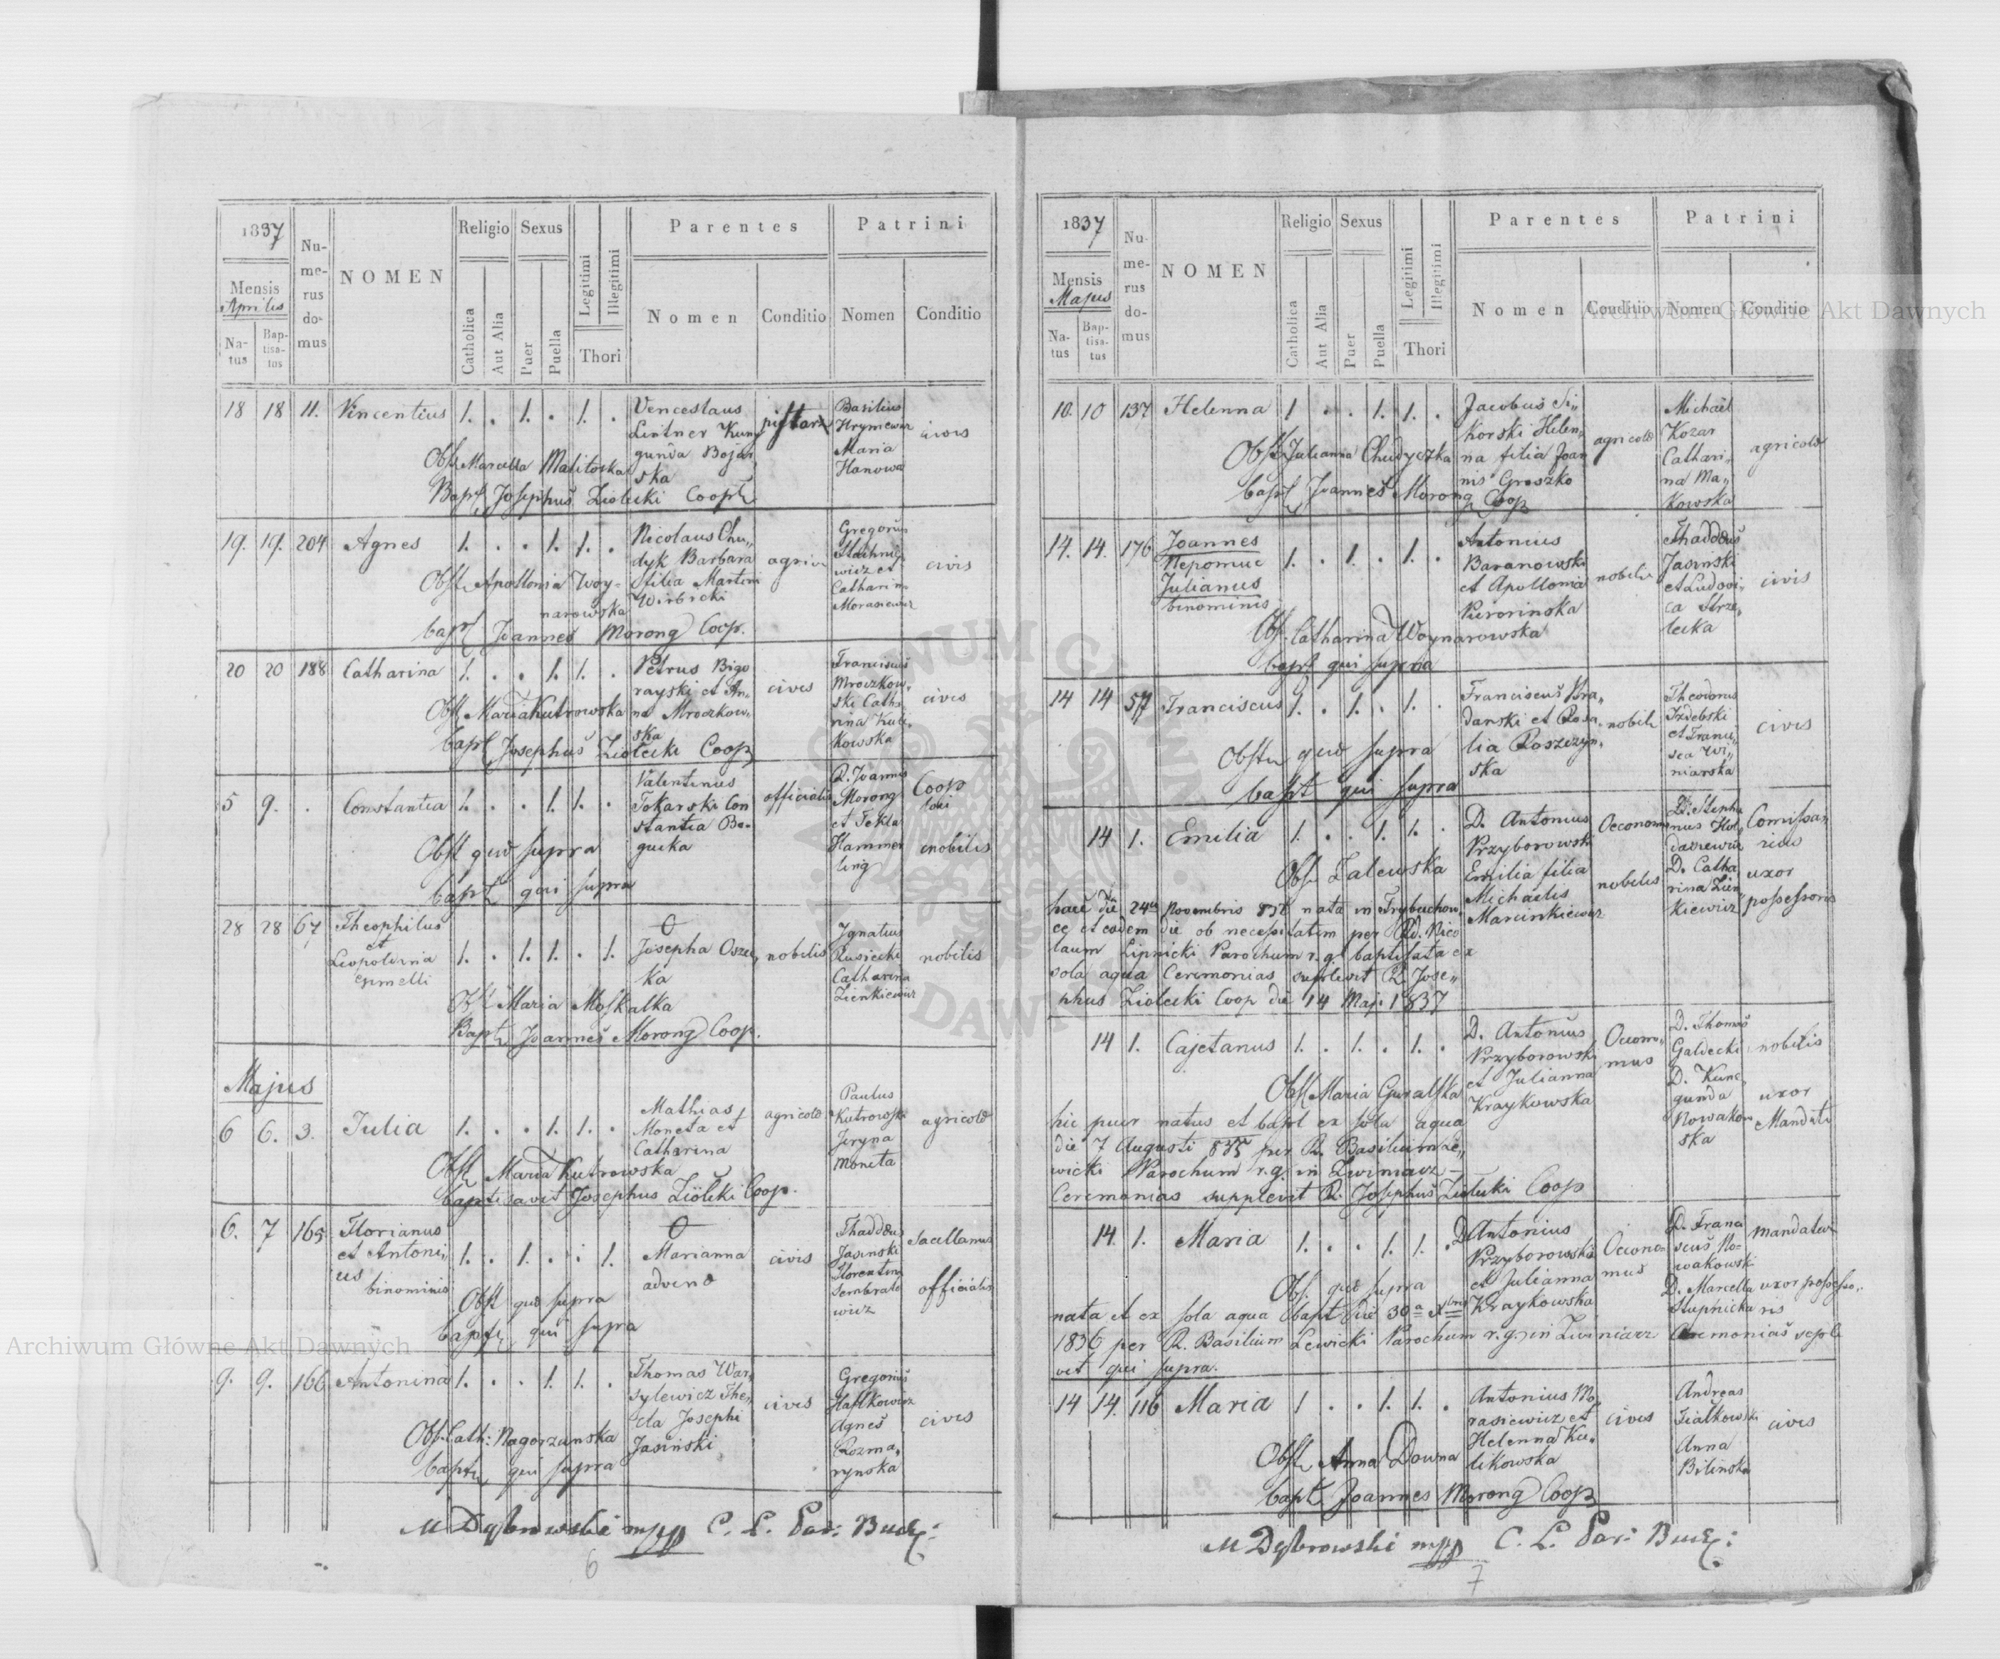 1837
Mensis
Aprilis
Natus
Bap-
tisa-
tus
Nu-
me-
rus
do-
mus
NOMEN
Religio
Catholica
Aut Alia
Sexus
Puer
Puella
Legitimi
Illegitimi
Thori
Parentes
Nomen
Conditio
Patrini
Nomen
Conditio
18 18 11. Vincentius 1. . 1. . 1. .
Venceslaus
Lintner Kuny
gunda Bojar
ska
Basilius
Hrymewicz
Maria
Hanowa
civis
Obst Marcella Malitoska
Bapt Josephus Ziolecki Coop
19. 19. 204 Agnes 1. . . 1. 1. .
Nicolaus Chu„
dyk Barbara
filia Martini
Wirbicki
agricola
Gregorius
Stachnie
wicz et
Catharina
Morasiewicz
civis
Obst Apollonia Woy-
narowska
bapt Joannes Morong Coop.
20 20 188 Catharina 1. . . 1. 1. .
Petrus Bigo
rayski et An„
na Mroczkow„
ska
cives
Franciscus
Mroczkow„
ski Catha
rina Kuli
kowska
cives
Obst Maria Kutrowska
bapt Josephus Ziolecki Coop
5 9. . Constantia 1. . . 1. 1. .
Valentinus
Tokarski Con
stantia Bo-
gucka
officialis
R. Joannes
Morong
et Tekla
Hammer
ling
Coop
loci
nobilis
Obst quo supra
bapt qui supra
28 28 67 Theophilus
et
Leopoldina
gemelli
1. . 1. 1. . 1.
0
Josepha Oszec„
ka
nobilis
Ignatius
Rusiecki
Catharina
Zienkiewicz
nobilis
Obst Maria Moskalka
Bapt Joannes Morong Coop.
Majus
6 6. 3. Julia 1. . . 1. 1. .
Mathias
Moneta et
Catherina
agricola
Paulus
Kutrowski
Jeryna
Moneta
agricola
Obst Maria Kutrowska
baptisavit Josephus Ziolecki Coop.
6. 7 165 Florianus
et Antoni„
us
binominis
1. . 1. . . 1.
0
Marianna
advena
civis
Thaddeus
Jasinski
Florentina
Sembrato
wicz
Sacellanus
officialis
Obst quo supra
bapt qui supra
9. 9. 166 Antonina 1. . . 1. 1. .
Thomas Was
sylewicz The„
cla Josephi
Jasinski
cives
Gregorius
Hafkowicz
Agnes
Rozma„
rynska
cives
Obst Cath: Nagorzanska
bapt qui supra
M Dąbrowski mpp C. L. Par: Bucz:
6
1837
Mensis
Majus
Na-
tus
Bap-
tisa-
tus
Nu-
me-
rus
do-
mus
NOMEN
Religio
Catholica
Aut Alia
Sexus
Puer
Puella
Legitimi
Illegitimi
Thori
Parentes
Nomen
Conditio
Patrini
Nomen
Conditio
10. 10 137 Helenna 1 . . 1. 1. .
Jacobus Si„
korski Helen„
na filia Joan
nis Groszko
agricola
Michael
Kozar
Cathari„
na Ma„
kowska
agricola
Obst Julianna Chudyczka
bapt Joannes Morong Coop
14. 14. 176 Joannes
Nepomuc
Julianus
binominis
1. . 1. . 1. .
Antonius
Baranowski
et Apollonia
nobiles
Thaddeus
Jasinski
et Ludovi„
ca Strze„
lecka
civis
Obst Catharina Woynarowska
bapt qui supra
14 14 57 Franciscus 1. . 1. . 1. .
Franciscus Bra„
danski et Rosa„
lia Roszczyn„
ska
nobiles
Theodorus
Izdebski
et Franci„
sca Wi„
niarska
civis
Obst quo supra
bapt qui supra
14 1. Emilia 1. . . 1. 1. .
D. Antonius
Przyborowski
Emilia filia
Michaelis
Marcinkiewicz
Oeconomus
nobilis
D. Stepha
nus Hol„
dasiewicz
D. Catha
rina Zien
kiewicz
Comissa„
rius
uxor
possessoris
Obst Zalewska
haec die 24a Novembris 831 nata in Trybuchow„
ce et eodem die ob necessitatem per Rd. Nico
laum Lipnicki Parochum r. g. baptisata ex
sola aqua Ceremonias suplevit R. Jose„
phus Ziolecki Coop die 14 Maji 1837
14 1. Cajetanus 1. . 1. . 1. .
D. Antonius
Przyborowski
et Julianna
Kraykowska
Oecono„
mus
D. Thomas
Galecki
D. Kune„
gunda
Nowakow
ska
nobilis
uxor
Mandat
Obst Maria Guralska
hic puer natus et bapt ex sola aqua
die 7 Augusti 835 per R. Basilium Le„
wicki Parochum r. g. in Zwiniacz
Ceremonias supplevit R. Josephus Ziolecki Coop
14. 1. Maria 1. . . 1. 1. .
D. Antonius
Przyborowski
et Julianna
Kraykowska
Oecono-
mus
D. Franci
scus No-
wakowski
D. Marcella
Stupnicka
mandatar
uxor possesso„
ris
Obst quo supra
nata et ex sola aqua bapt die 30a Xbris
1836 per R. Basilium Lewicki Parochum r. g. in Zwiniacz Ceremonias suple
vit qui supra.
14 14. 116 Maria 1 . . 1. 1. .
Antonius Mo
rasiewicz et
Helenna Ku„
likowska
cives
Andreas
Fialkowski
Anna
Bilinska
cives
Obst Anna Downa
bapt Joannes Morong Coop
M Dąbrowski mpp C. L. Par: Bucz:
7
Archiwum Główne Akt Dawnych
Archiwum Główne Akt Dawnych
ARCHIWUM GŁÓWNE AKT DAWNYCH